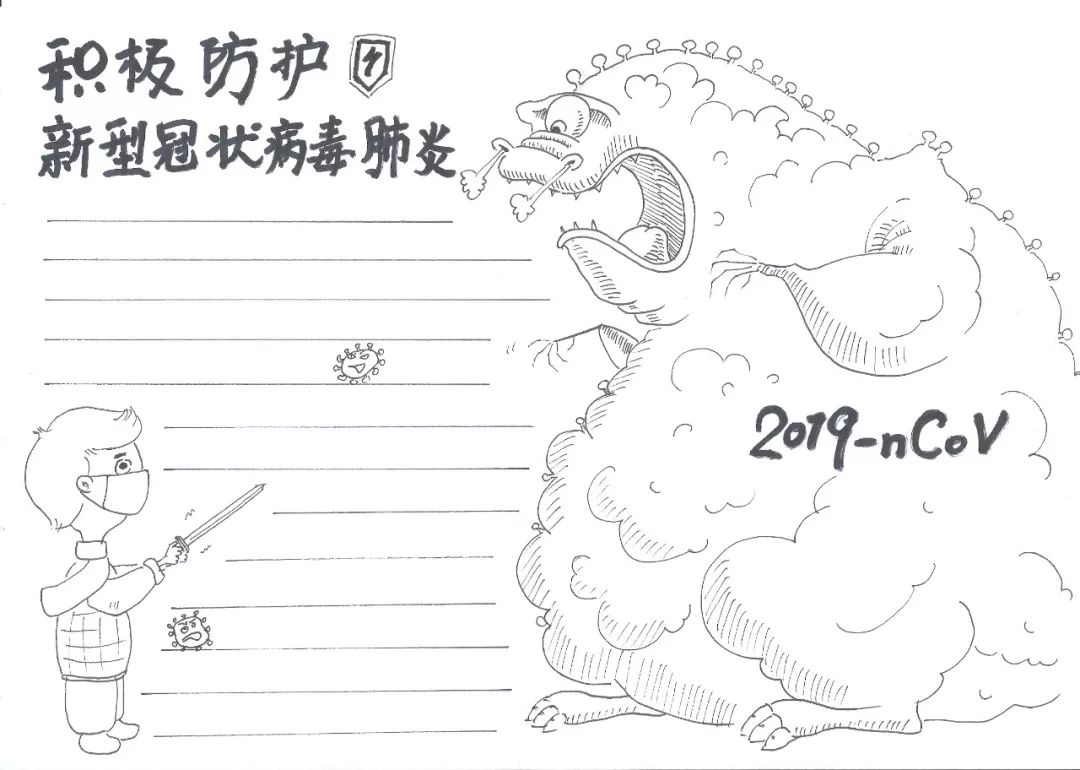 积极防护
新型冠状病毒肺炎
2019-nCoV